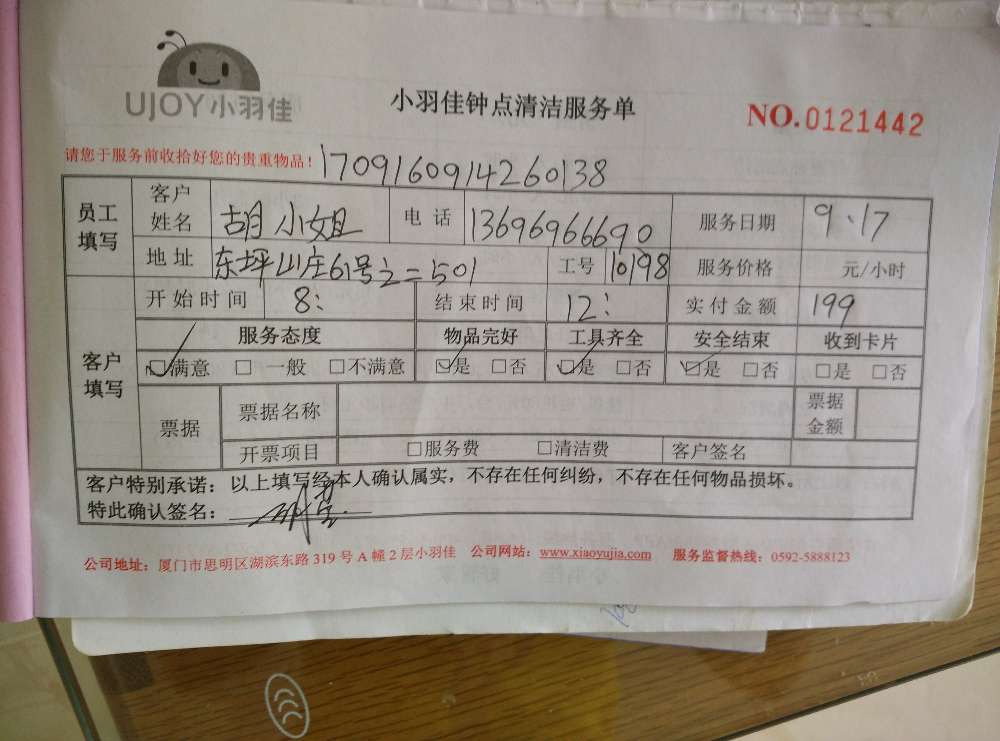 UJOY小羽佳
小羽佳钟点清洁服务单
NO.0121442
请您于服务前收拾好您的贵重物品！
1709160914260138
员工填写 客户姓名 胡小姐 电话 13696966690 服务日期 9、17
地址 东坪山庄61号之二501 工号 10198 服务价格 元/小时
客户填写 开始时间 8: 结束时间 12: 实付金额 199
服务态度 物品完好 工具齐全 安全结束 收到卡片
☑满意 □一般 □不满意 ☑是 □否 ☑是 □否 ☑是 □否 □是 □否
票据 票据名称 票据金额
开票项目 □服务费 □清洁费 客户签名
客户特别承诺：以上填写经本人确认属实，不存在任何纠纷，不存在任何物品损坏。
特此确认签名：
公司地址：厦门市思明区湖滨东路319号A幢2层小羽佳 公司网站：www.xiaoyujia.com 服务监督热线：0592-5888123